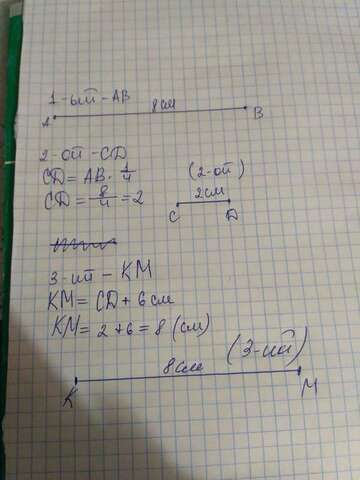 1-ый-AB
8см
A B
2-ой-CD
CD = AB · 1/4
(2-ой)
CD = 8/4 = 2
2см
C D
3-ий - KM
KM = CD + 6 см
KM = 2 + 6 = 8 (см)
(3-ий)
8см
K M